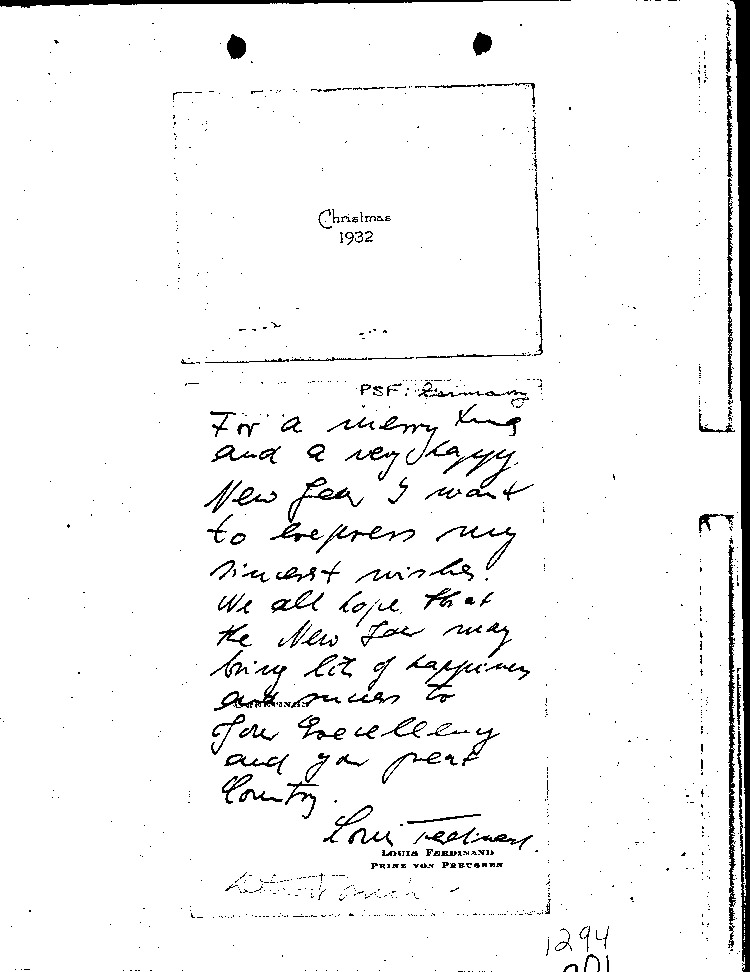 Christmas
1932
PSF: Germany
For a merry Xmas
and a very happy
New Year I want
to express my
sincerest wishes.
We all hope that
the New Year may
bring lots of happiness
and success to
GREETINGS
Your Excellency
and your great
Country.
Louis Ferdinand.
LOUIS FERDINAND
PRINZ VON PREUSSEN
1294
201